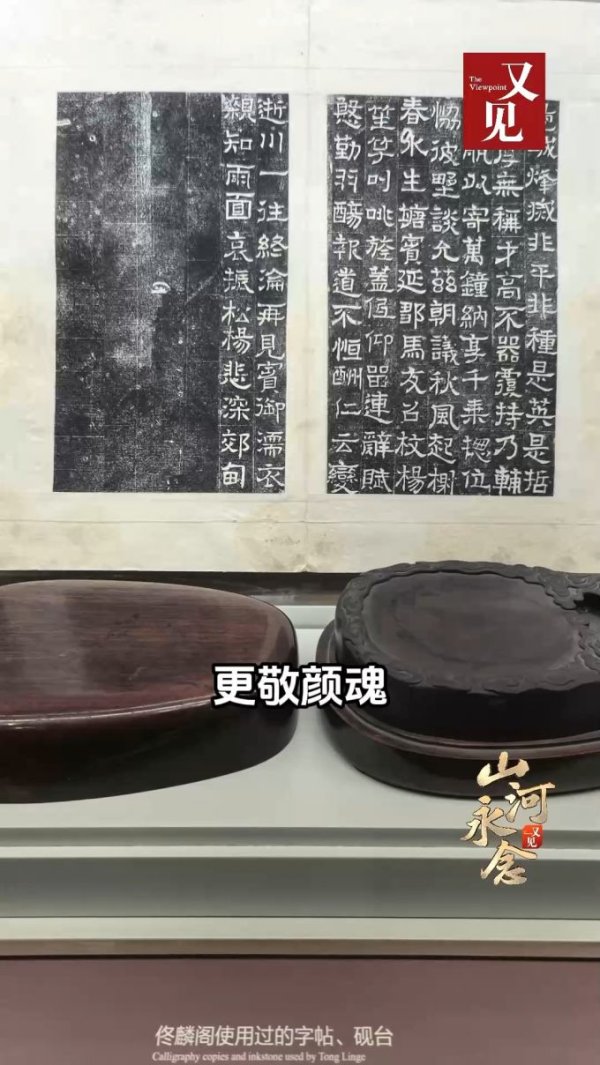 The Viewpoint
又见
城烽滅非平非種是英是哲
厚無稱才高不器覆持乃輔
服以寄萬鐘納享千乘揔位
恊彼墅談允茲朝議秋風起榭
春水生塘賓延鄒馬友召枚楊
笙竽叫咷旌蓋俛仰罍連辭賦
慇勤羽觴報道不恒酬仁云變
逝川一往終淪再見賓御濡衣
親知雨面哀振松楊悲深郊甸
更敬颜魂
山河永念
又见
佟麟阁使用过的字帖、砚台
Calligraphy copies and inkstone used by Tong Linge